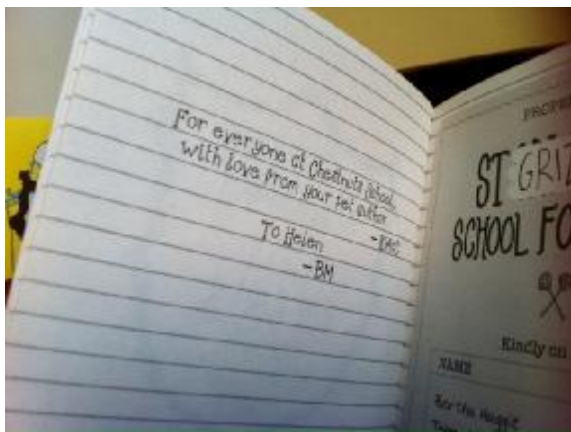 For everyone at Chestnuts School,
with love from your pet author
-KAC
To Helen
-BM
PROPE
ST GRIZ
SCHOOL FO
Kindly on
NAME